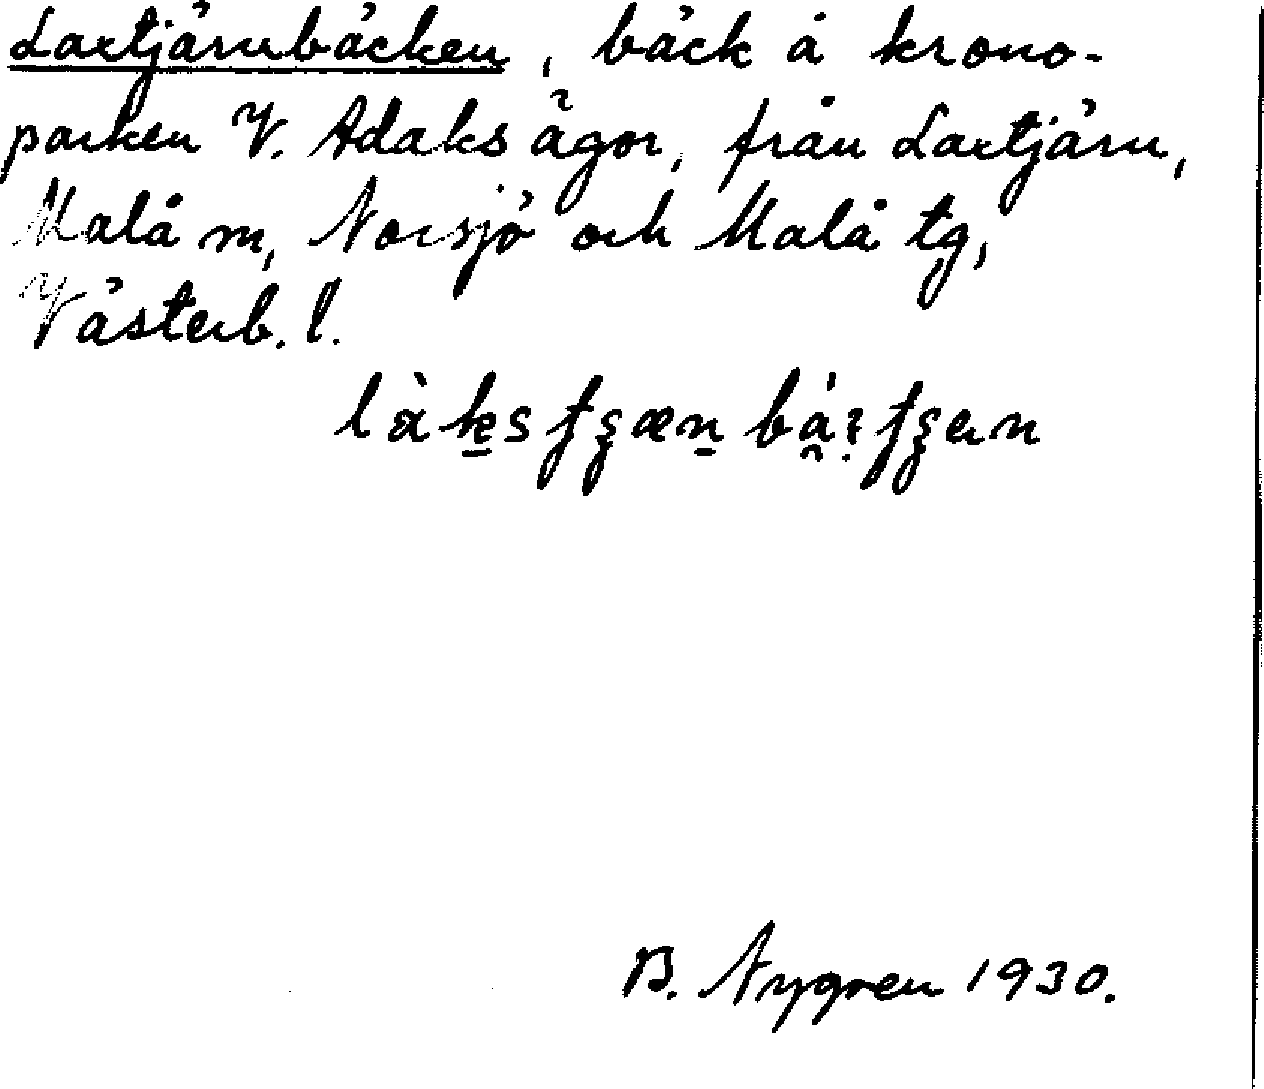 Laxtjärnbäcken, bäck å krono-
parken V. Adaks ägor, från Laxtjärn,
Malå m, Norsjö och Malå tg,
Västerb. l.
B. Nygren 1930.